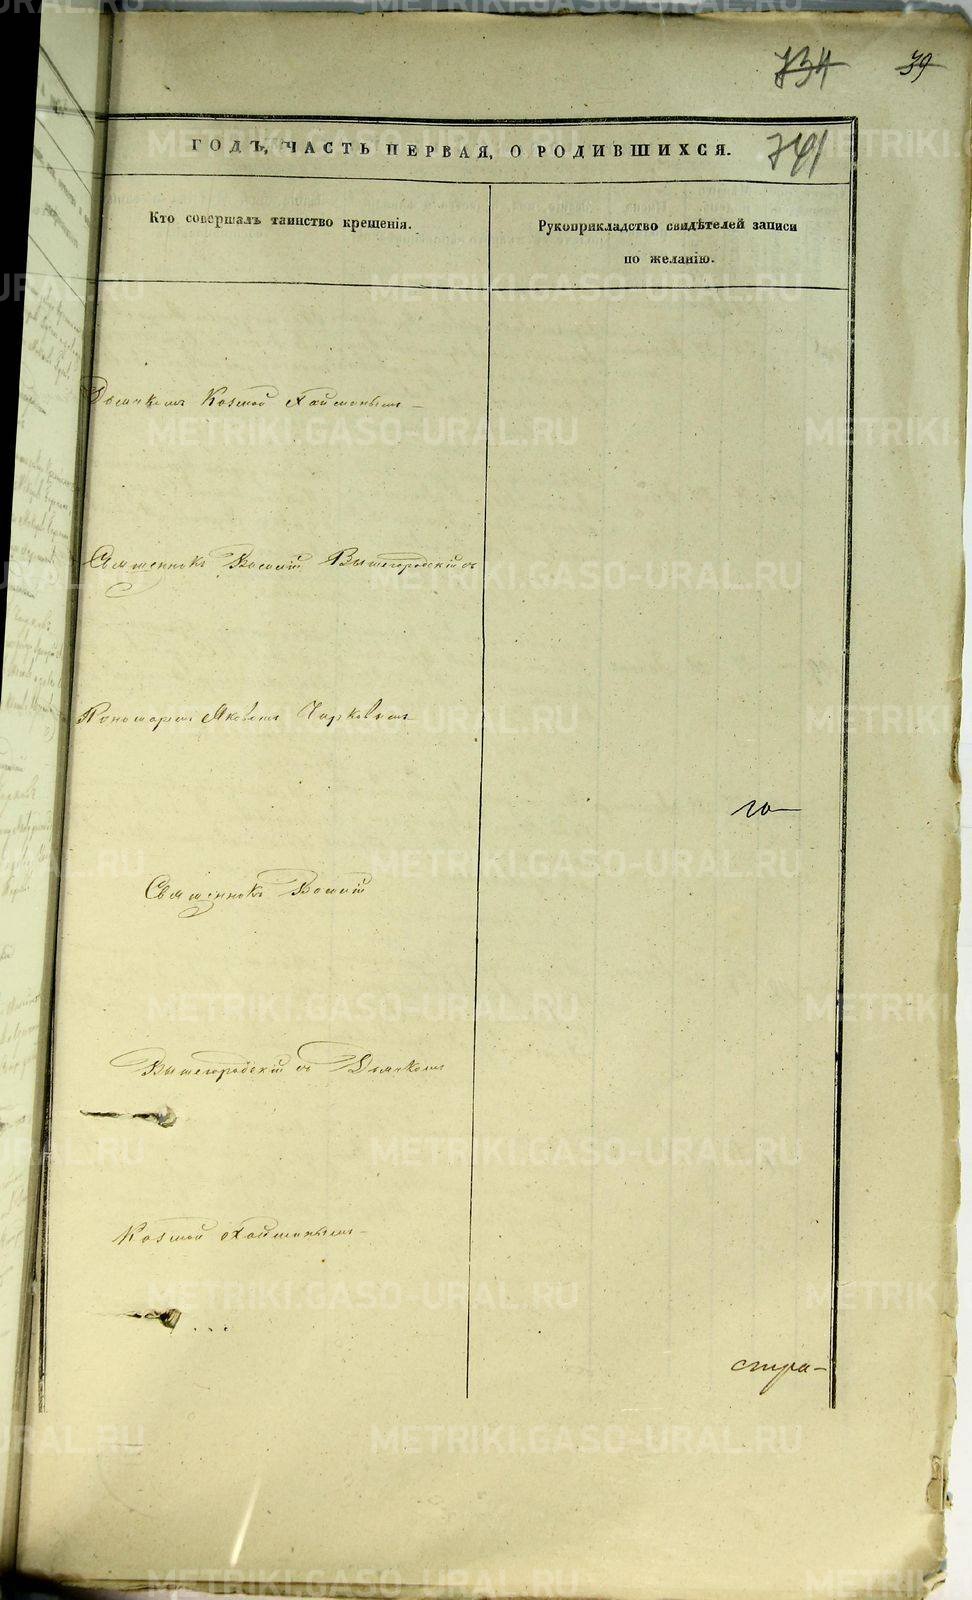 734 39
741
ГОДЪ, ЧАСТЬ ПЕРВАЯ, О РОДИВШИХСЯ.
Кто совершалъ таинство крещенія.
Рукоприкладство свидѣтелей записи
по желанію.
Дьячкомъ Козмой
Священникъ Василій Вышегородскій съ
Пономаремъ Яковомъ
го
Священникъ Василій
Вышегородскій съ Дьячкомъ
Козмой
стра-
METRIKI.GASO-URAL.RU